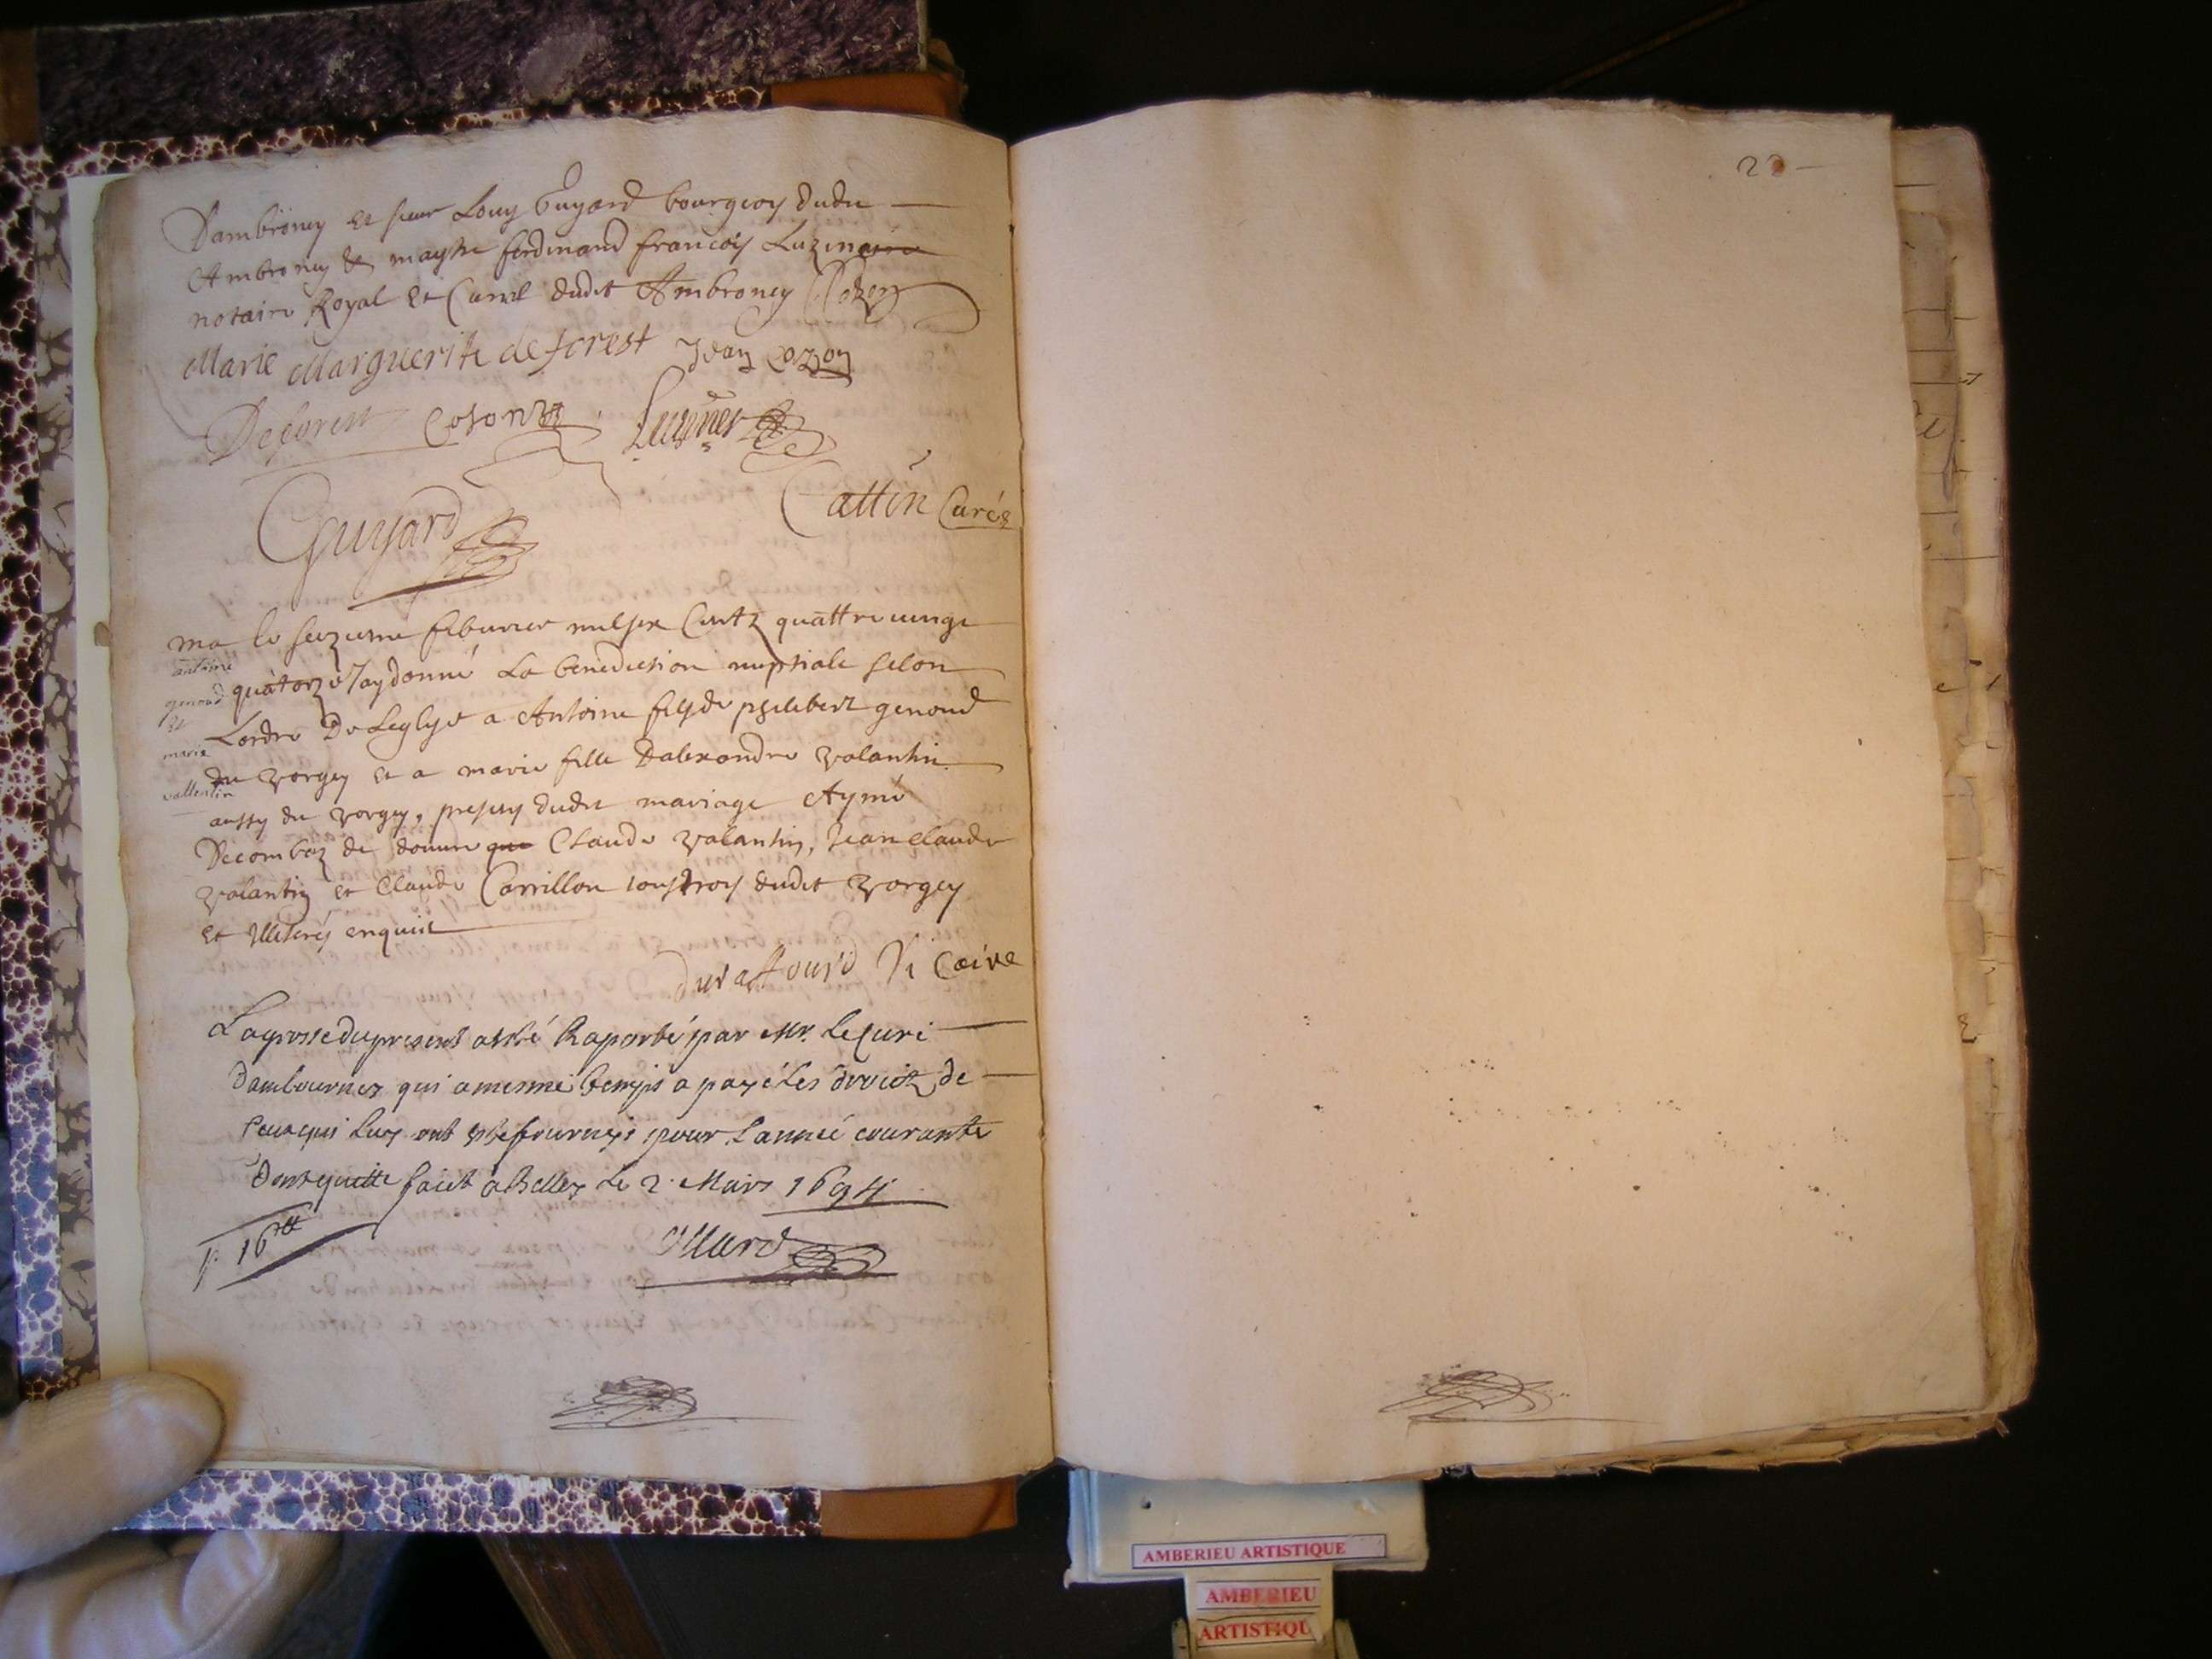 Dambroney et sieur Louy Guyard bourgeoy dudit
Ambroney & maystre ferdinand francois Luzinaire
notaire Royal et Curial dudit Ambroney Cozon
Marie Marguerite deforest Jean Cozon
Deforest Cozon
Guyard
Cattin Curé
ma le seizieme feburier mil six Centz quattre vingt
antoine
genoud
et
marie
vallentin
quatorze Jay donné La benediction nuptiale selon
Lordre De Leglyse a Antoine fils de philibert genoud
du vorgey et a marie fille Dalexandre valantin
aussy du vorgey, presens dudit mariage Aymé
Decombaz de Claude valantin, Jean Claude
valantin et Claude Carrillon tous troys dudit vorgey
et illiterés enquis
duraffourd Vicaire
La grosse du present a esté Raporté par Mr. le Curé
Dambournex qui a mesme temps a payé les droicts de
Ceux qui Luy ont esté fournys pour Lannée courante
Dont quitte faict à Belley Le 2 Mars 1694
p. 16tt
22
AMBERIEU ARTISTIQUE
AMBERIEU
ARTISTIQU